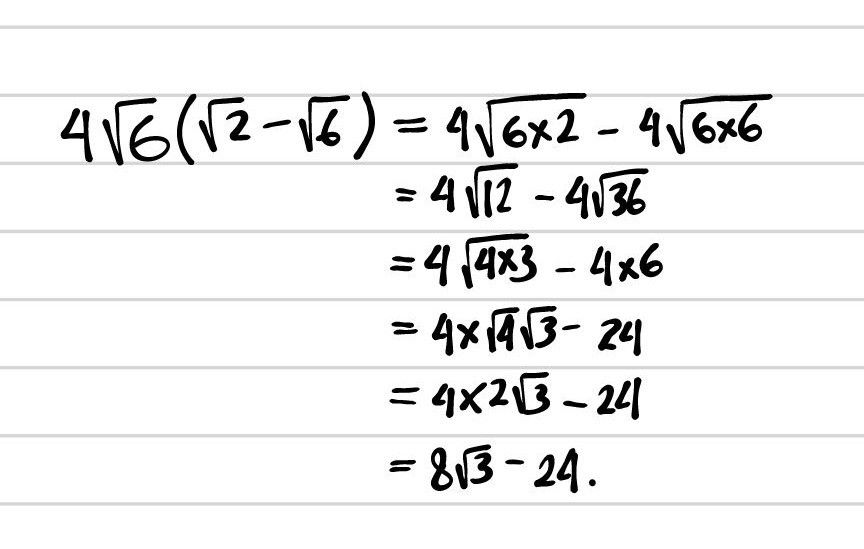 4√6(√2-√6) = 4√(6×2) - 4√(6×6)
= 4√12 - 4√36
= 4√(4×3) - 4×6
= 4×√4√3 - 24
= 4×2√3 - 24
= 8√3 - 24.